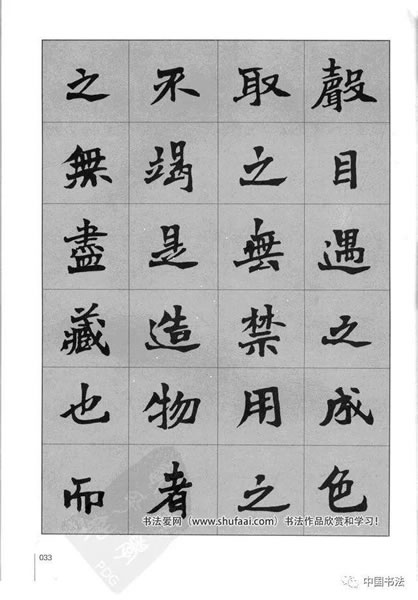 聲目遇之成色
取之無禁用之
不竭是造物者
之無盡藏也而
书法爱网（www.shufaai.com）书法作品欣赏和学习！
033
中国书法
PDG